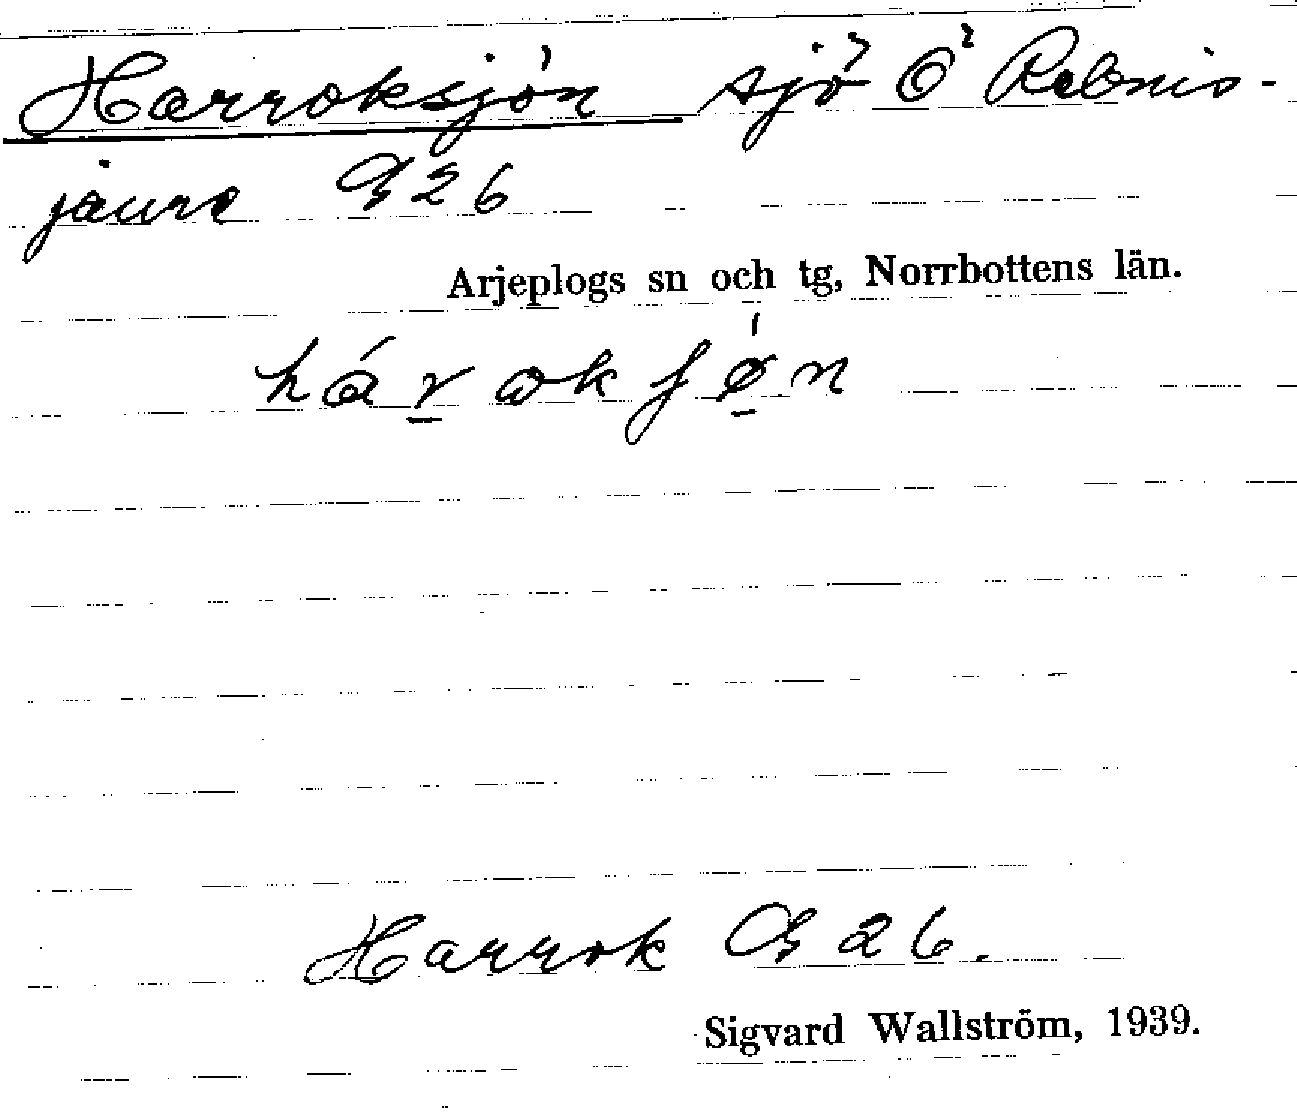 Harroksjön sjö Ö Rebnis-
jaure G 26
Arjeplogs sn och tg, Norrbottens län.
hárokʃø̱n
Harrok G 26.
Sigvard Wallström, 1939.